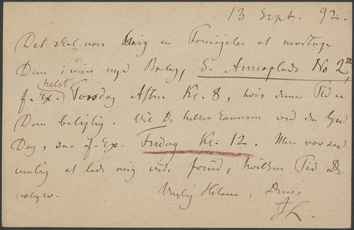 13 Sept. 92.
Det skal være mig en Fornøjelse at modtage
Dem i min nye Bolig, S. Annæplads No 2
f. Ex. Torsdag Aften Kl. 8, hvis denne Tid er
Dem belejlig. Vil De heller komme ved
Dag, saa f. Ex. Fredag Kl. 12. Men vær saa
venlig at lade mig vide forud, hvilken Tid De
vælger.
Venlig Hilsen, Deres